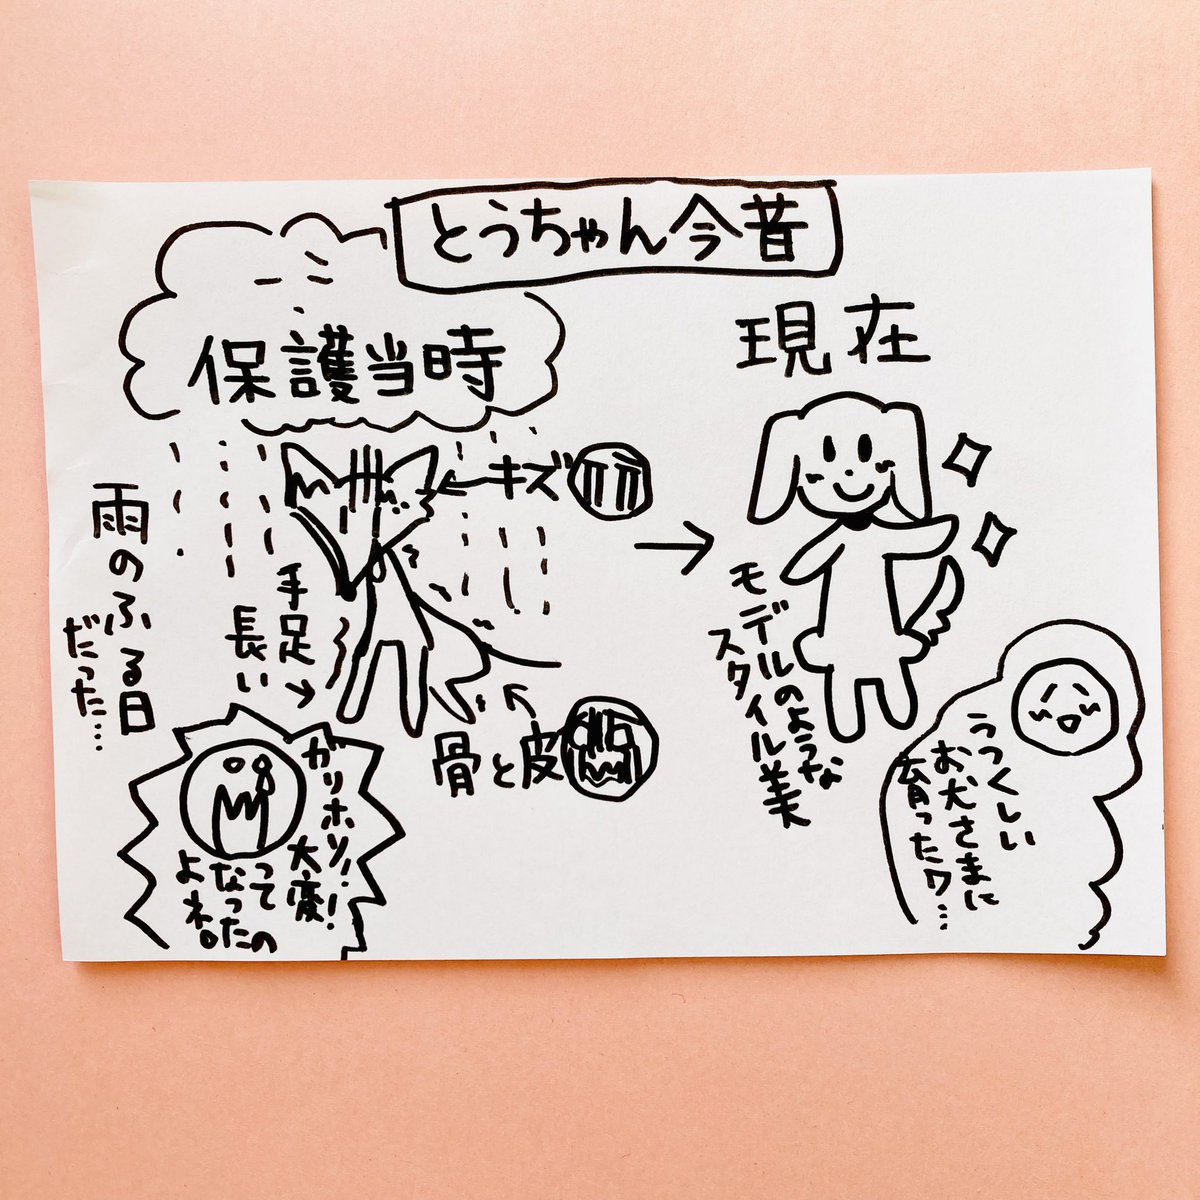 とうちゃん今昔
保護当時
雨のふる日
だった…
手足
長い
キズ
骨と皮
ガリホソ!!
大変
って
なったの
よネ。
現在
モデルのような
スタイル美
うつくしい
お犬さまに
育ったワ…